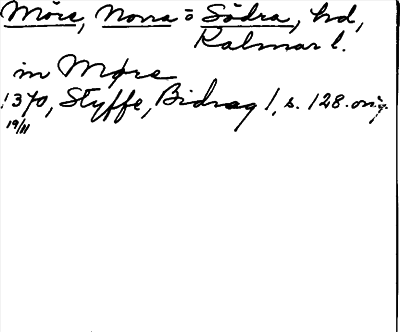 Möre, Norra o Södra, hd,
Kalmar l.
in Møre
1370, Styffe, Bidrag 1, s. 128. orig.
19/11